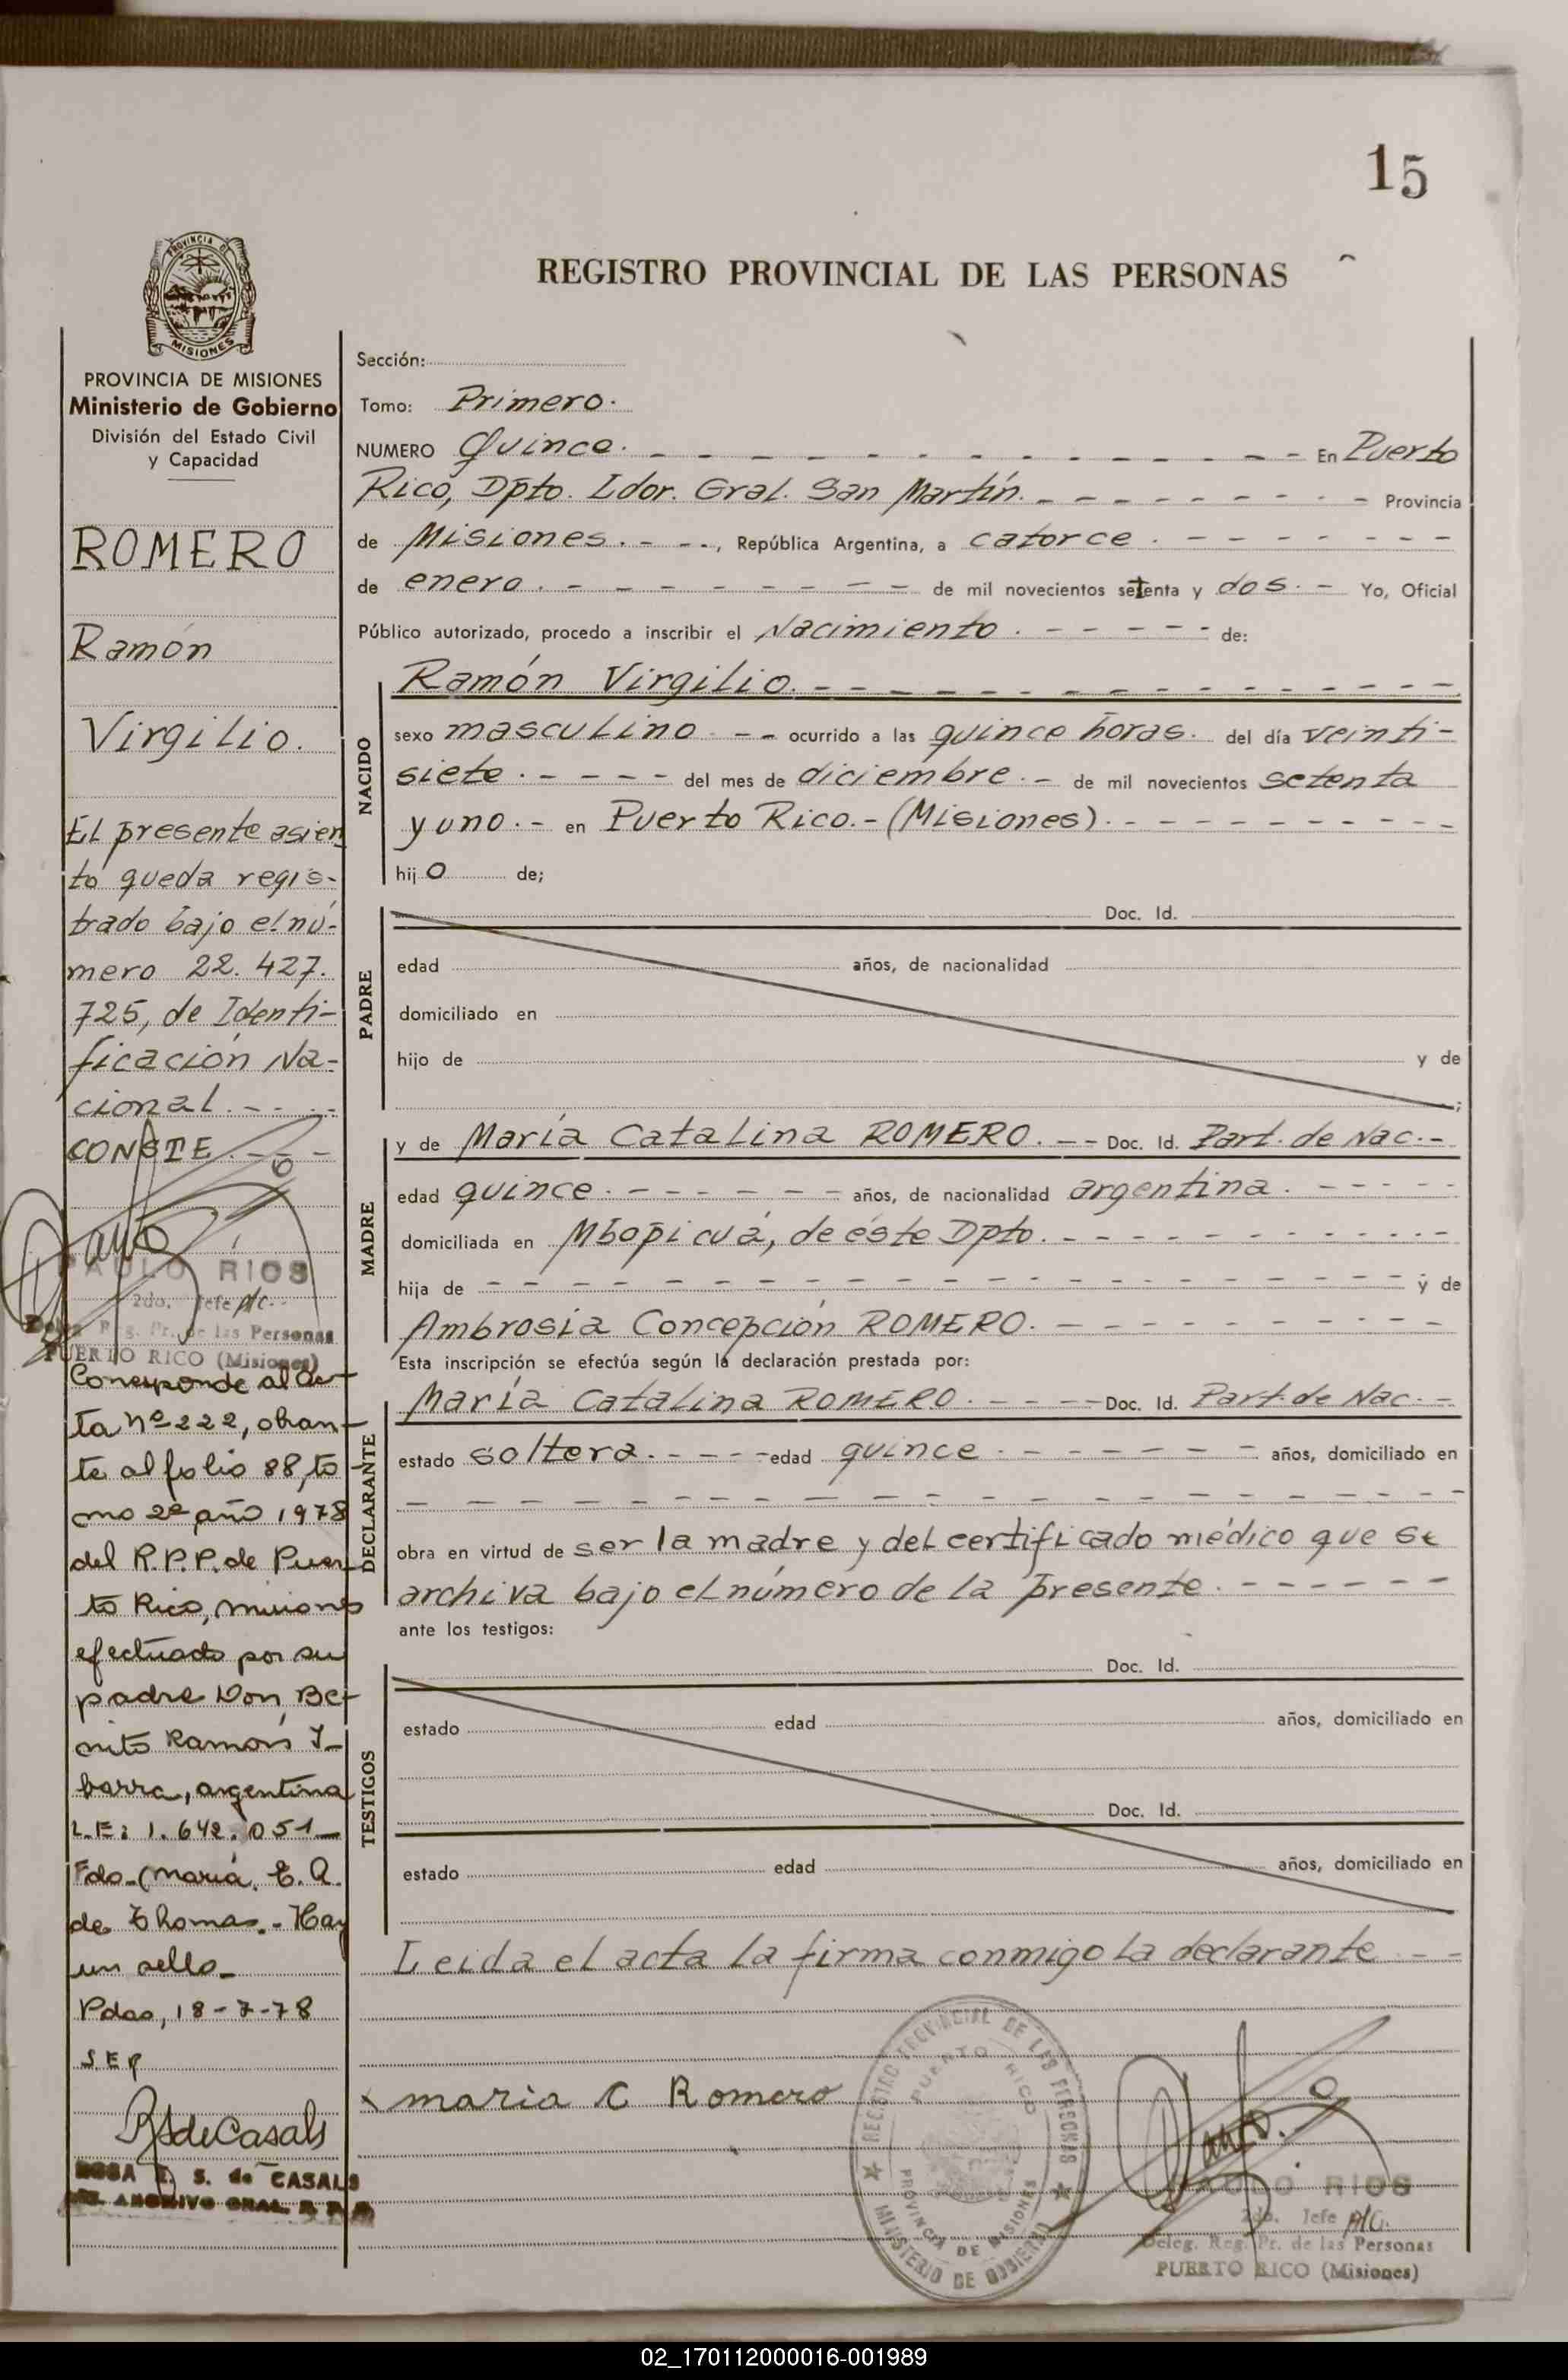 15
REGISTRO PROVINCIAL DE LAS PERSONAS
MISIONES
PROVINCIA DE MISIONES
Ministerio de Gobierno
División del Estado Civil
y Capacidad
ROMERO
Ramón
Virgilio.
El presente asien
to queda regis-
trado bajo el nú-
mero 22.427.
725, de Identi-
ficación Na-
cional.
CONSTE.
PAULO RIOS
2do. Jefe
Deleg. Reg. Pr. de las Personas
PUERTO RICO (Misiones)
Corresponde al ac-
ta nº 222, obran-
te al folio 88, to
mo 2º año 1978
del R.P.P. de Puer
to Rico, misiones
efectuado por su
padre Don Be-
nito Ramón I-
barra, argentina
L.E: 1.642.051
Fdo. (maria. E. A.
de Thomas. - Hay
un sello
Pdas, 18-7-78
SEP
RSdeCasals
ROSA E. S. de CASALS
ARCHIVO GRAL.
Sección:
Tomo: Primero.
NUMERO Quince. En Puerto
Rico, Dpto. Ldor. Gral. San Martín. Provincia
de Misiones. - --, República Argentina, a catorce.
de enero. de mil novecientos setenta y dos. - Yo, Oficial
Público autorizado, procedo a inscribir el Nacimiento. de:
NACIDO
Ramón Virgilio.
sexo masculino - -- ocurrido a las quince horas. del día veinti-
siete. del mes de diciembre. - de mil novecientos setenta
y uno. - en Puerto Rico. - (Misiones).
hijo de;
PADRE
Doc. Id.
edad años, de nacionalidad
domiciliado en
hijo de y de
;
MADRE
y de María Catalina ROMERO. -- Doc. Id. Part. de Nac. -
edad quince. años, de nacionalidad argentina.
domiciliada en Mbopicuá, de éste Dpto.
hija de y de
Ambrosia Concepción ROMERO.
Esta inscripción se efectúa según la declaración prestada por:
DECLARANTE
María Catalina ROMERO. Doc. Id. Part. de Nac. -
estado soltera. edad quince. años, domiciliado en
obra en virtud de ser la madre y del certificado médico que se
archiva bajo el número de la presente.
ante los testigos:
TESTIGOS
Doc. Id.
estado edad años, domiciliado en
Doc. Id.
estado edad años, domiciliado en
Leida el acta la firma conmigo la declarante
x maria C Romero
REGISTRO PROVINCIAL DE LAS PERSONAS
PUERTO RICO
PROVINCIA DE MISIONES
MINISTERIO DE GOBIERNO
PAULO RIOS
2do. Jefe
Deleg. Reg. Pr. de las Personas
PUERTO RICO (Misiones)
02_170112000016-001989